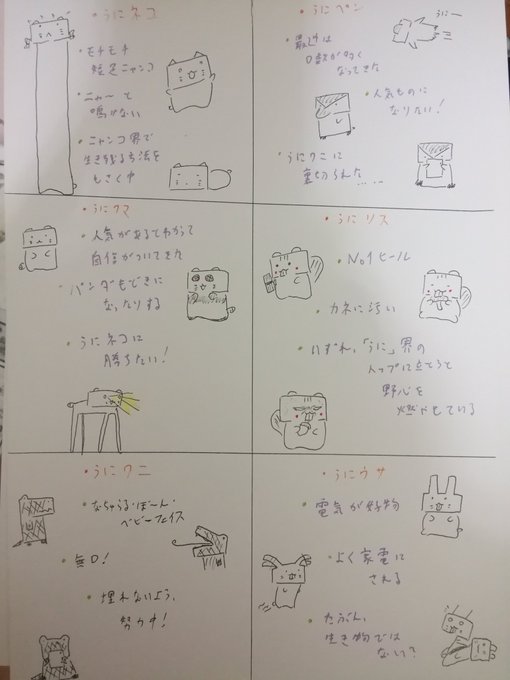 ・うにネコ
・モチモチ
短足ニャンコ
・ニャ〜と
鳴かない
・ニャンコ界で
生き残る方法を
もさく中
・うにペン
・最近は
口数が多く
なってきた
・人気ものに
なりたい！
・うにワニに
裏切られた……
うにー
・うにクマ
・人気があるてわかって
自信がついてきた
・パンダもどきに
なったりする
・うにネコに
勝ちたい！
・うにリス
・No1ヒール
・カネに汚い
・いずれ、「うに」界の
トップに立とうと
野心を
燃やしている
・うにワニ
・なちゅらる・ぼーん・
ベビーフェイス
・無口！
・埋れないよう、
努力中！
・うにウサ
・電気が好物
・よく家電に
される
・たぶん、
生き物では
ない？